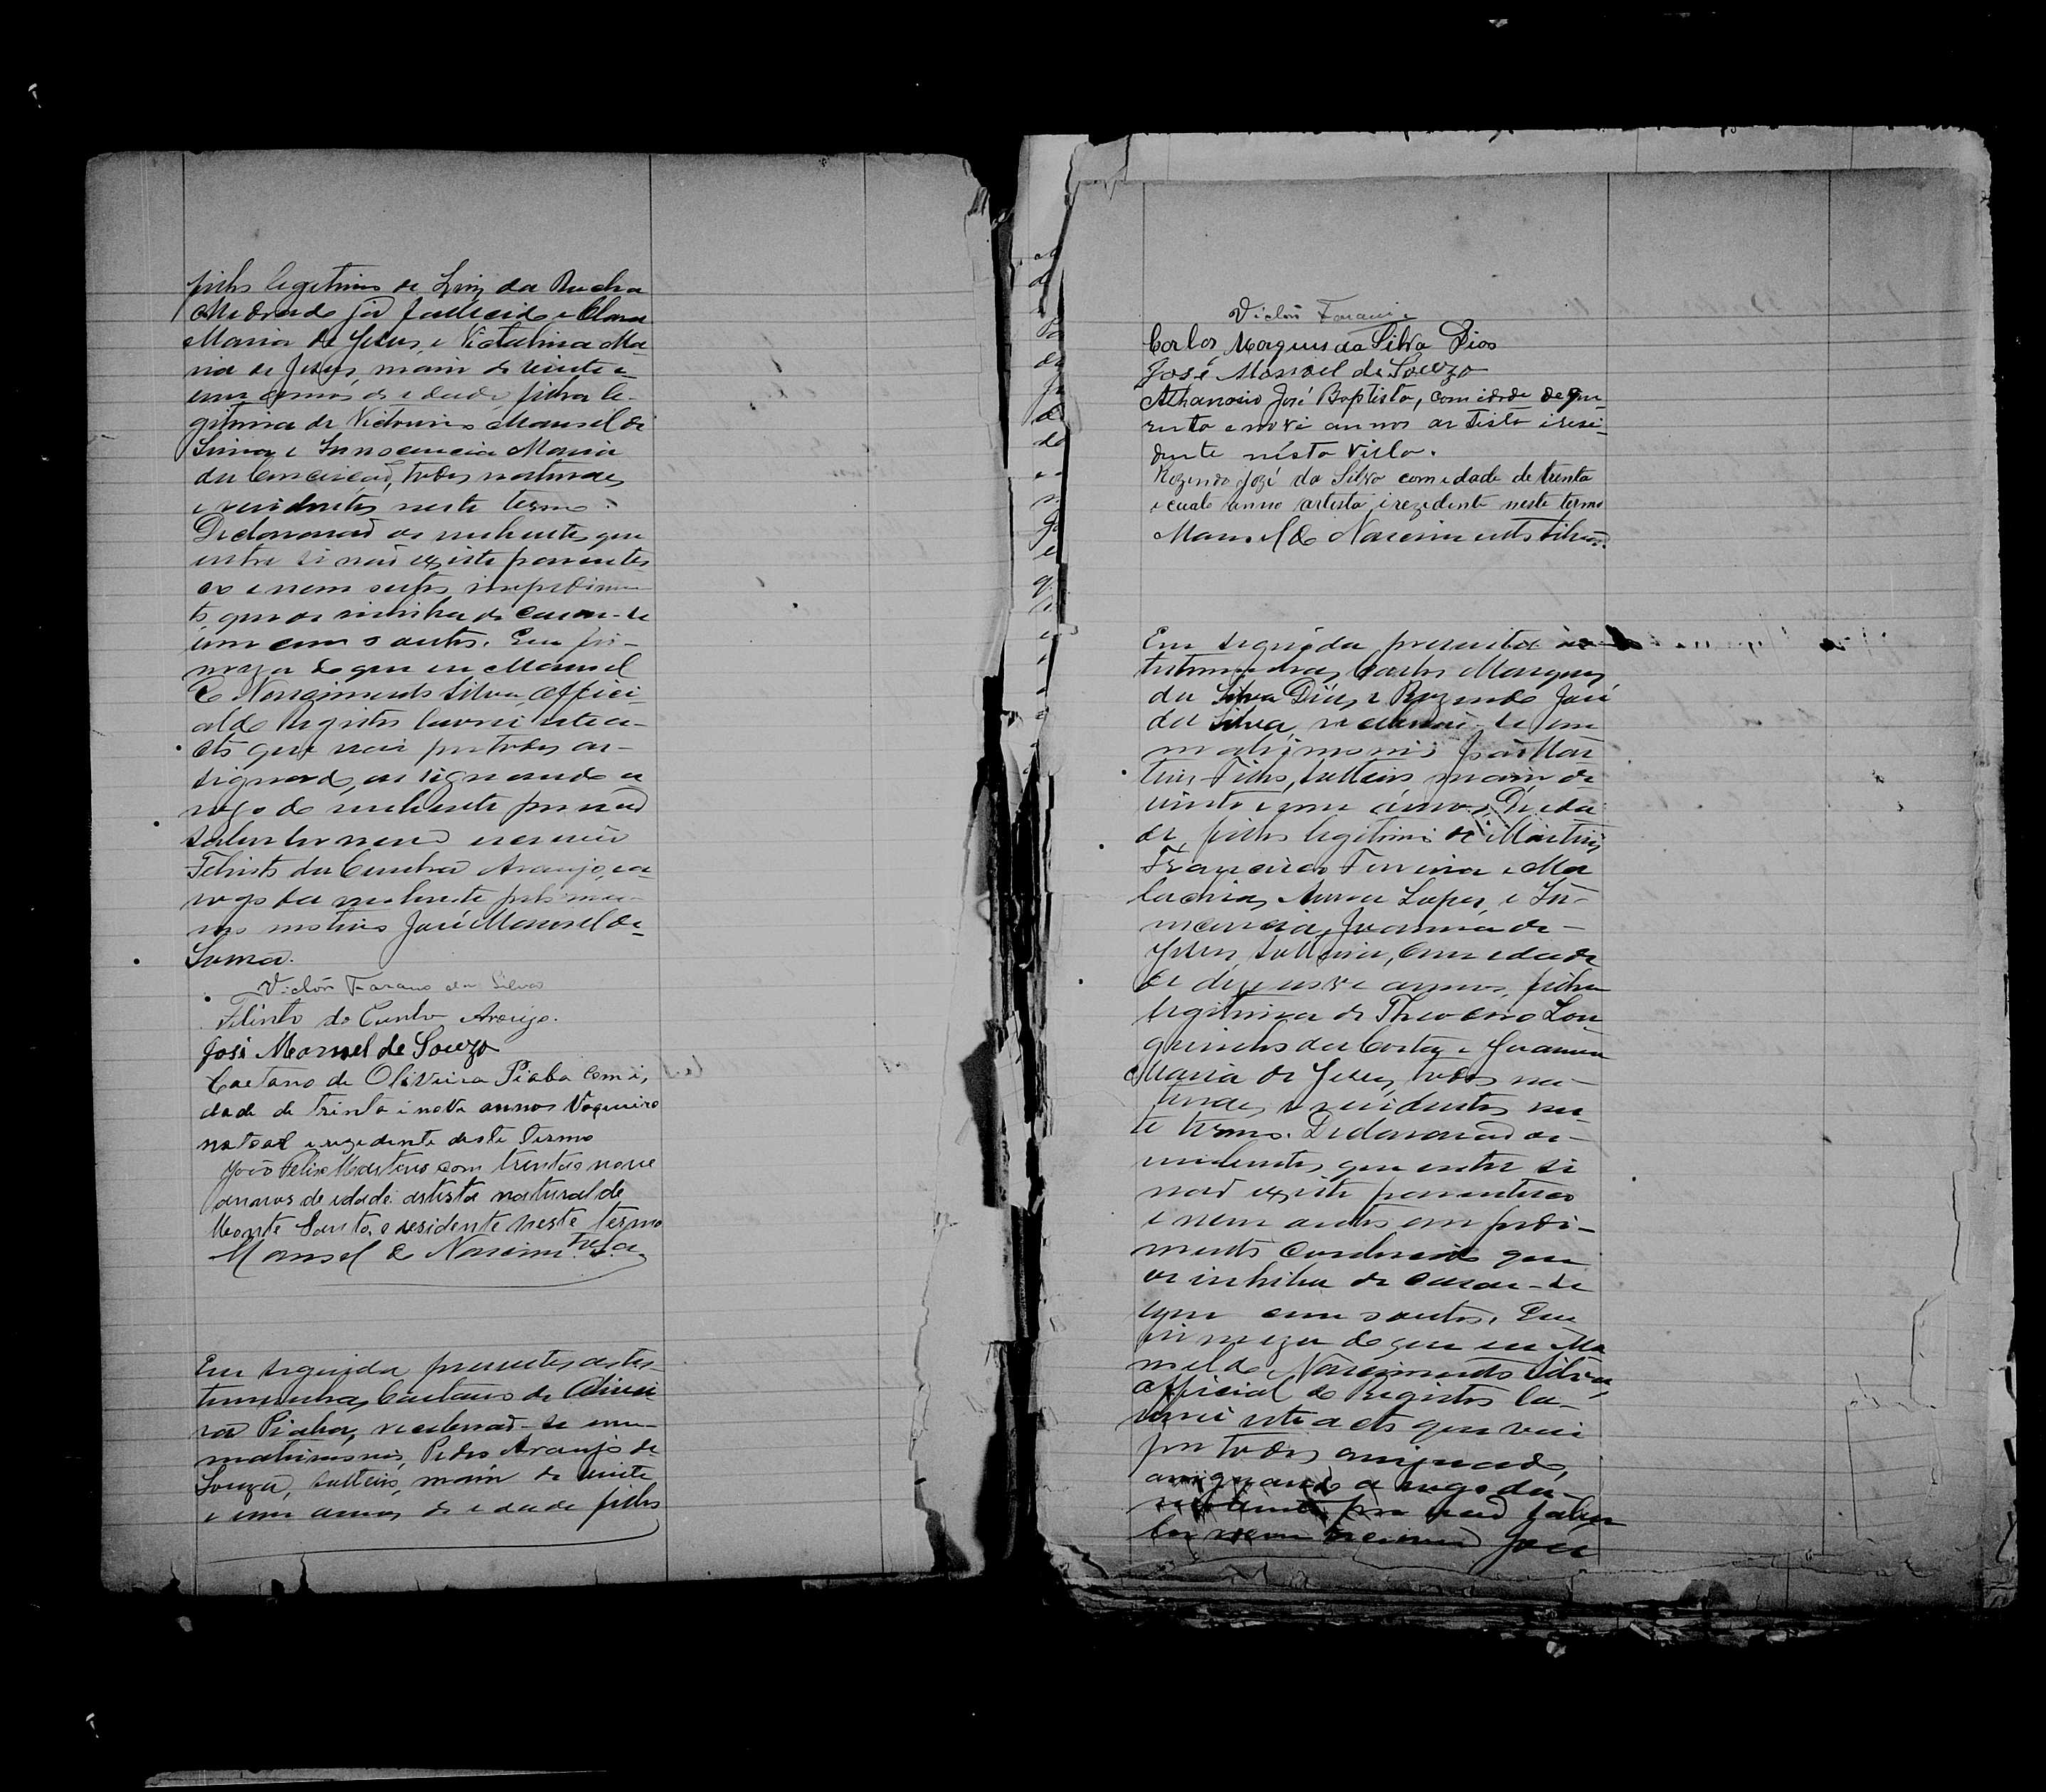 filho legitimo de Luiz da Rocha
Madrado já fallecido e Clara
Maria de Jesus, e Victalina Ma-
ria de Jesus, maior de vinte e
um annos de edade, filha le-
gitima de Victorino Manoel de
Lima e Innocencia Maria
da Conceicaõ, todos naturaes
e residentes neste termo.
Declararaõ os nubentes que
entre si naõ existe parentes
co e nem outro impedimen
to que os inhiba de casar-se
um com o outro. Em fir-
meza do que eu Manoel
do Nascimento Silva, Offici-
al do registro lavrei este a-
cto que vai por todos as-
signado, assignando a
rogo do nubente por naõ
saber ler nem escrever
Felinto da Cunha Araujo, e a
rogo da nubente pelo mes-
mo motivo José Manoel de
Souza.
Victor Farano da Silva
Felinto da Cunha Araujo.
José Manoel de Souza
Caetano de Oliveira Piaba com i,
dade de trinta i nove annos Vaqueiro
natoral e rezidente deste Termo
João Felix Martins com trinta e nove
annos de idade artista natural de
Monte Santo, e residente neste termo
Manoel do Nascim.to Sa.
Em seguida presentes as tes-
temunhas Caetano de Olivei
ra Piaba, receberaõ-se em
matrimonio, Pedro Araujo de
Souza, solteiro, maior de vinte
e um annos de edade filho
Victor Farano
Carlos Marques da Silva Dias
José Manoel de Souza
Athanasio José Baptista, com idade de qua-
renta e novi annos artista i resi-
dente nésta Villa.
Rozendo Jozé da Silva com edade de trenta
e cuato anno artista i rezidente neste termo
Manoel do Nascimento Silva.
Em seguida presentes as
testemunhas Carlos Marques
da Silva Dias, e Rozendo José
da Silva, receberaõ-se em
matrimonio João Mar
tins Filho, solteiro maior de
vinte e um annos, De eda
de, filho legitimo de Martins
Francisco Ferreira e Ma
Anna Lopes, e In-
nocencia Joanna de
Jesus, solteira, com edade
de dezenove annos, filha
legitima de Theodoro Lon
guinho da Costa e Joanna
Maria de Jesus, todos na-
turaes e residentes nes
te termo. Declararaõ os
nubentes que entre si
naõ existe parentesco
e nem outro empedi-
mento conhecido que
os inhiba de casar-se
um com o outro. Em
firmeza do que eu Ma
noel do Nascimento Silva,
official do Registro la-
vrei este acto que vai
por todos assignado,
assignando a rogo da
nubente por naõ saber
ler nem escrever José